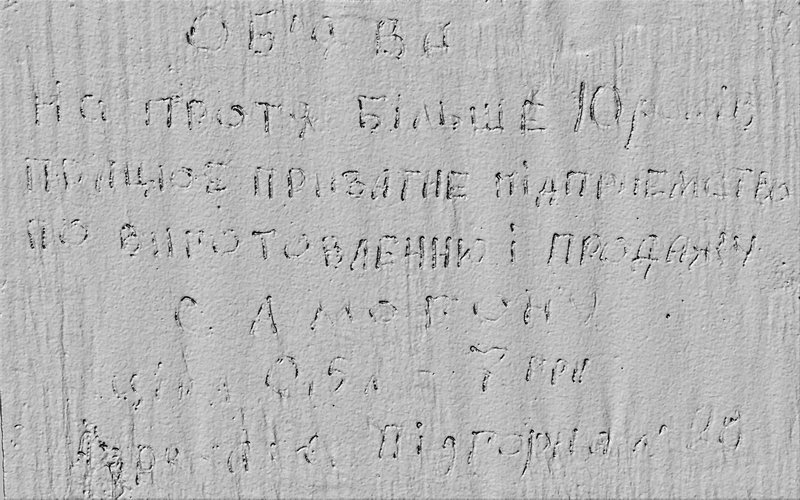 ОБ'ЯВА
НА ПРОТЯ БІЛЬШЕ 10 років
ПРАЦЮЄ ПРИВАТНЕ ПІДПРИЄМСТВО
ПО ВИГОТОВЛЕННЮ І ПРОДАЖУ
САМОГОНУ.
ціна 0,5 л - 7 грн
Підгорна 28